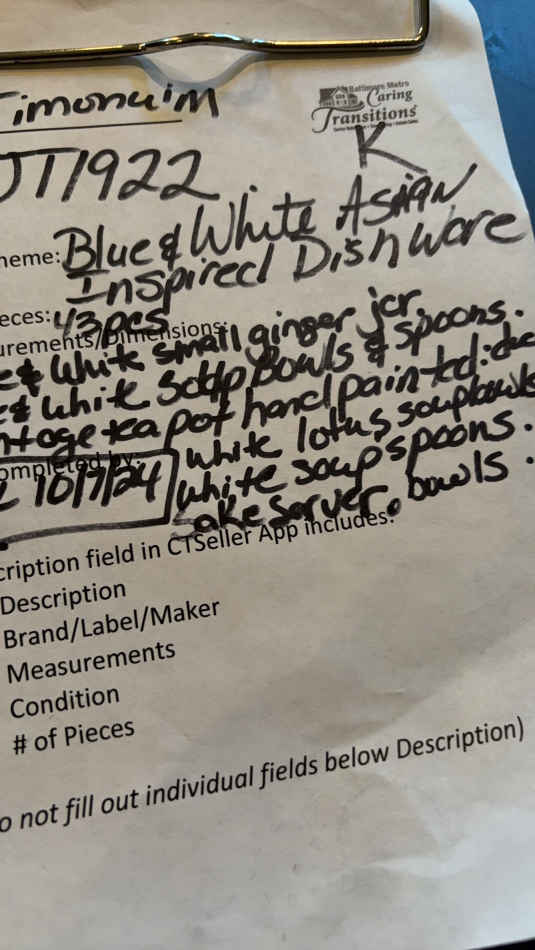 Timonuim
Baltimore Metro
Caring
Transitions
K
JT1922
heme: Blue & White Asian
Inspired Dish Ware
eces: 43pcs
urements/Dimensions:
e & White small ginger jar.
e & White soup Bowls & spoons.
ntage teapot hand painted.
white lotus soup bowls
ompleted by:
10/7/24
white soup spoons.
sake server. bowls.
cription field in CTSeller App includes:
Description
Brand/Label/Maker
Measurements
Condition
# of Pieces
o not fill out individual fields below Description)